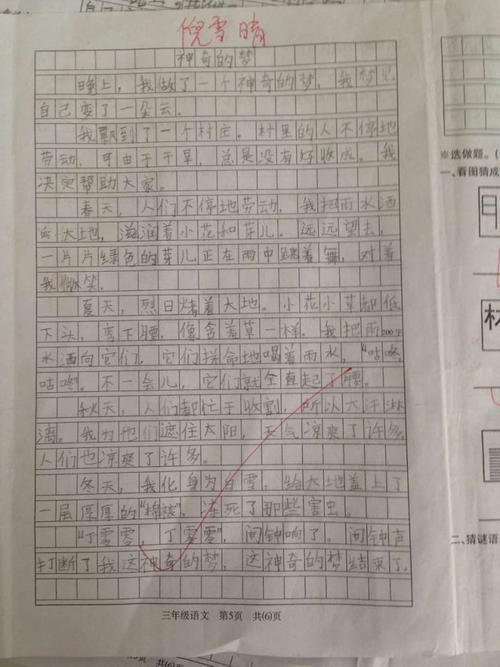 倪雪晴
神奇的梦
晚上，我做了一个神奇的梦，我梦见
自己变了一朵云。
我飘到了一个村庄。村里的人不停地
劳动，可由于干旱，总是没有好收成。我
决定帮助大家。
春天，人们不停地劳动，我把雨水洒
向大地，滋润着小花和芽儿。远远望去，
一片片绿色的芽儿正在雨中跳着舞，对着
我微笑。
夏天，烈日烤着大地。小花小草都低
下头，弯下腰，像含羞草一样。我把雨
200字
水洒向它们，它们拼命地喝着雨水，“咕咚，
咕咚”。不一会儿，它们就全直起了腰。
秋天，人们都忙于收割，所以大汗淋
漓。我为他们遮住太阳，天气凉爽了许多，
人们也凉爽了许多。
冬天，我化身为白雪，给大地盖上了
一层厚厚的“棉被”，冻死了那些害虫。
“丁零零，丁零零”，闹钟响了。闹钟声
打断了我这神奇的梦，这神奇的梦结束了。
三年级语文 第5页 共(6)页
※选做题。(
一、看图猜成
二、猜谜语